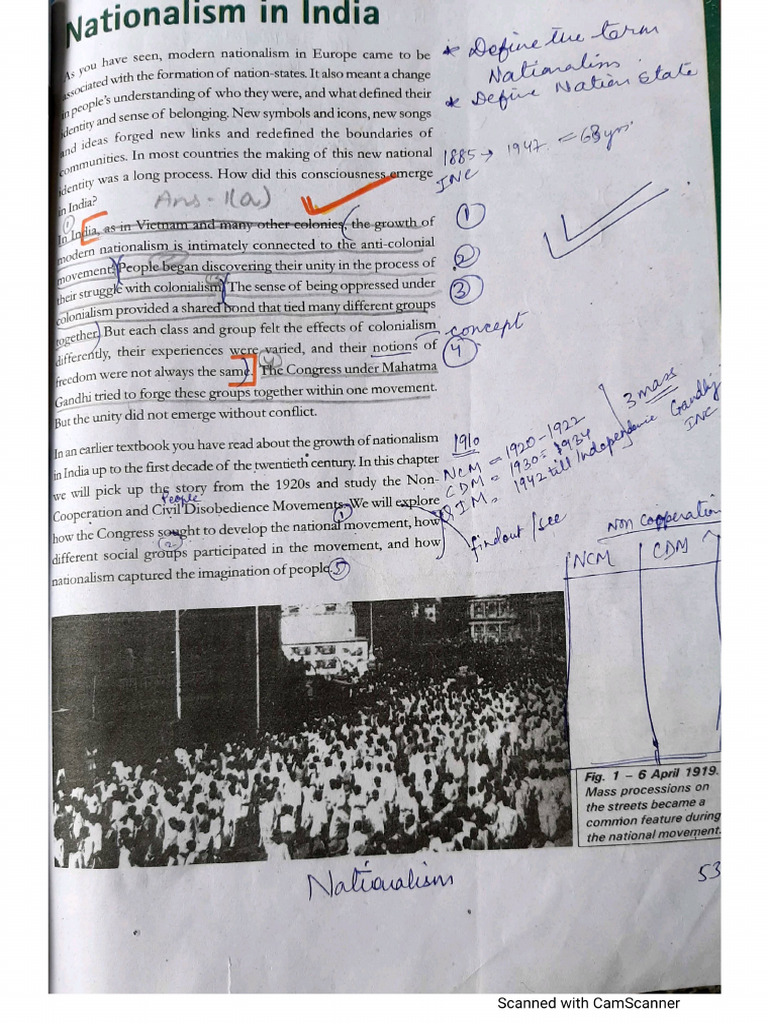 Nationalism in India
As you have seen, modern nationalism in Europe came to be
associated with the formation of nation-states. It also meant a change
in people's understanding of who they were, and what defined their
identity and sense of belonging. New symbols and icons, new songs
and ideas forged new links and redefined the boundaries of
communities. In most countries the making of this new national
identity was a long process. How did this consciousness emerge
in India?
Ans - 1(a)
In India, as in Vietnam and many other colonies, the growth of
modern nationalism is intimately connected to the anti-colonial
movement. People began discovering their unity in the process of
their struggle with colonialism. The sense of being oppressed under
colonialism provided a shared bond that tied many different groups
together. But each class and group felt the effects of colonialism
differently, their experiences were varied, and their notions of
freedom were not always the same. The Congress under Mahatma
Gandhi tried to forge these groups together within one movement.
But the unity did not emerge without conflict.
In an earlier textbook you have read about the growth of nationalism
in India up to the first decade of the twentieth century. In this chapter
we will pick up the story from the 1920s and study the Non-
People
Cooperation and Civil Disobedience Movements. We will explore
how the Congress sought to develop the national movement, how
different social groups participated in the movement, and how
nationalism captured the imagination of people.
* Define the term
Nationalism
* Define Nation State
1885 → 1947 = 68 yrs
INC
1
2
3
concept
4
1910
NCM = 1920-1922
CDM = 1930 = 1934
QIM, 1942 till Independence
3 mass
Gandhiji
INC
findout / see
Non cooperation
NCM CDM
Fig. 1 – 6 April 1919.
Mass processions on
the streets became a
common feature during
the national movement.
Nationalism
53
Scanned with CamScanner